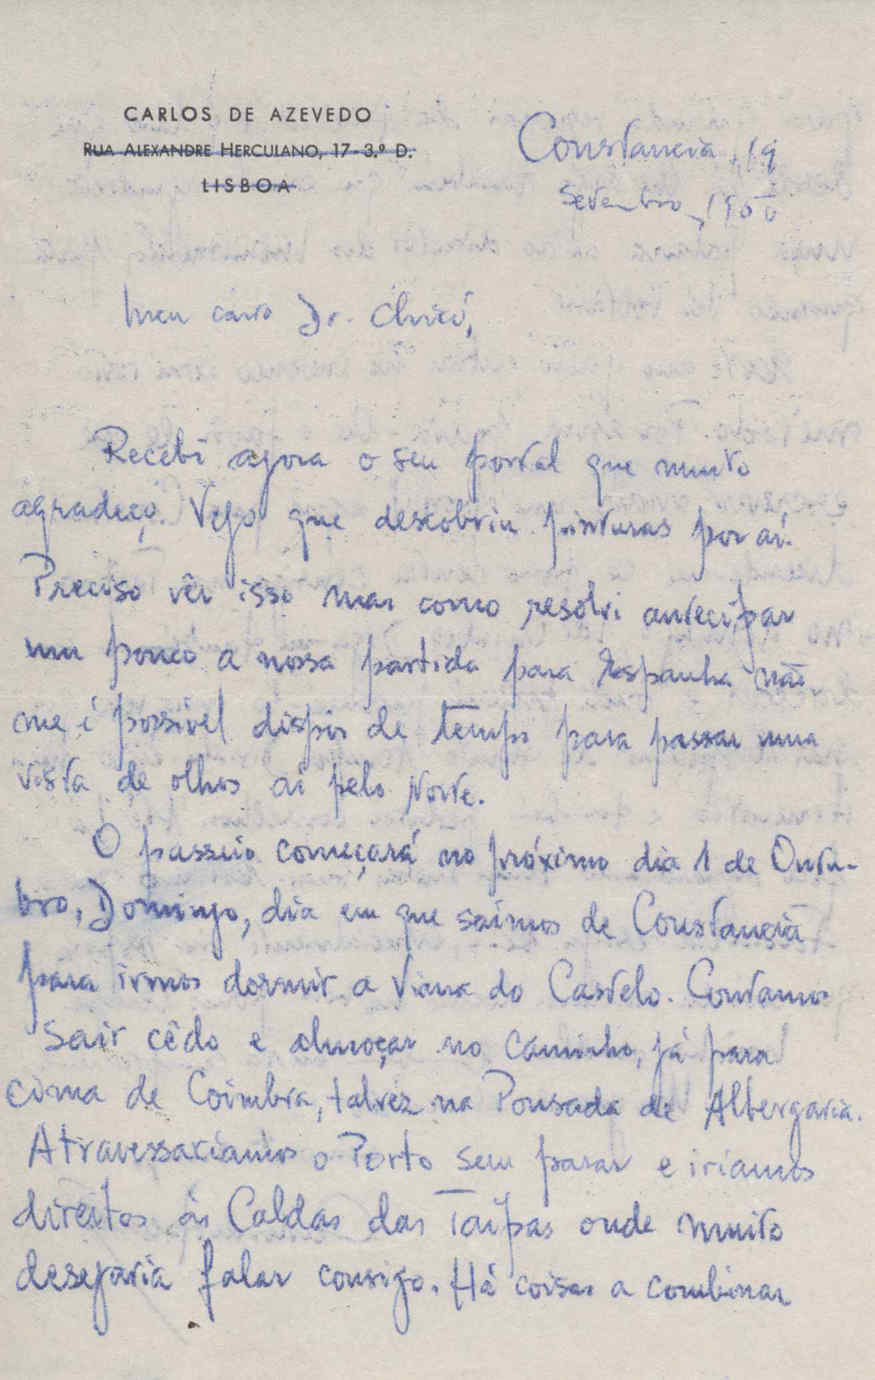 CARLOS DE AZEVEDO
RUA ALEXANDRE HERCULANO, 17-3.º D.
LISBOA
Constancia, 19
Setembro, 1950
Meu caro Dr. Chicó,
Recebi agora o seu postal que muito
agradeço. Vejo que descobriu pinturas por aí.
Preciso vêr isso mas como resolvi antecipar
um pouco a nossa partida para Espanha não
me é possível dispôr de tempo para passar uma
vista de olhos aí pelo Norte.
O passeio começará no próximo dia 1 de Outu-
bro, Domingo, dia em que saímos de Constancia
para irmos dormir a Viana do Castelo. Contamos
sair cêdo e almoçar no caminho, já para
cima de Coimbra, talvez na Pousada de Albergaria.
Atravessaríamos o Porto sem parar e iríamos
direitos às Caldas das Taipas onde muito
desejaria falar consigo. Há coisas a combinar